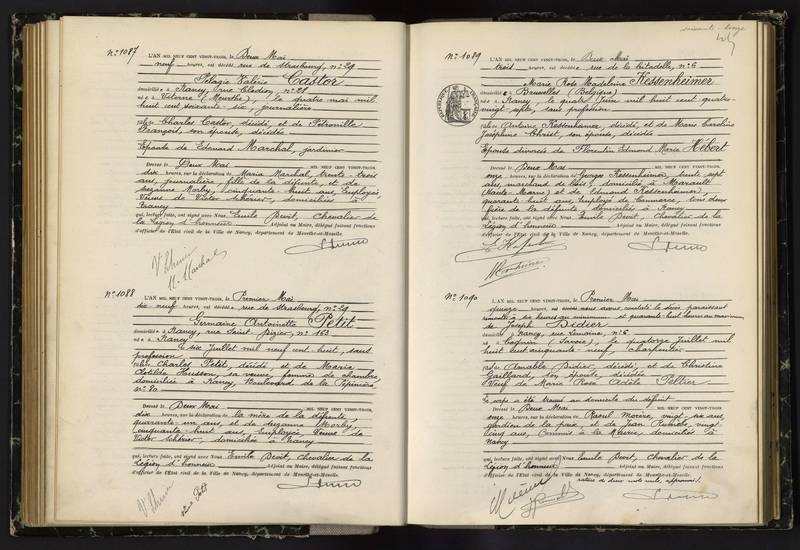 N° 1087
L'AN MIL NEUF CENT VINGT-TROIS, le Deux Mai
neuf heures, est décédée rue de Strasbourg, n° 29
Pélagie Valérie Castor
domiciliée à Nancy, rue Clodion, n° 21
née à Viterne (Meurthe), le quatre mai mil
huit cent soixante-six, journalière
fille de Charles Castor, décédé, et de Pétronille
François, son épouse, décédée
Epouse de Edouard Marchal, jardinier
Dressé le Deux Mai MIL NEUF CENT VINGT-TROIS,
dix heures, sur la déclaration de Maria Marchal, trente-trois
ans, journalière, fille de la défunte, et de
Suzanne Morby, cinquante-huit ans, Employée,
Veuve de Victor Schérier, domiciliées à
Nancy
qui, lecture faite, ont signé avec Nous Emile Devit, Chevalier de
la Légion d'honneur Adjoint au Maire, délégué faisant fonctions
d'officier de l'État civil de la Ville de Nancy, département de Meurthe-et-Moselle.
M. Marchal
N° 1088
L'AN MIL NEUF CENT VINGT-TROIS, le Premier Mai
dix-neuf heures, est décédée rue de Strasbourg, n° 29
Germaine Antoinette Petit
domiciliée à Nancy, rue Saint-Dizier, n° 163
née à Nancy
le six Juillet mil neuf cent huit, sans
profession
fille de Charles Petit, décédé, et de Marie
Clotilde Husson, sa veuve, femme de chambre,
domiciliée à Nancy, Boulevard de la Pépinière,
n° 80
Dressé le Deux Mai MIL NEUF CENT VINGT-TROIS,
dix heures, sur la déclaration de la mère de la défunte,
quarante-un ans, et de Suzanne Morby,
cinquante-huit ans, Employée, Veuve de
Victor Schérier, domiciliée à Nancy
qui, lecture faite, ont signé avec Nous, Emile Devit, Chevalier de la
Légion d'honneur Adjoint au Maire, délégué faisant fonctions
d'officier de l'État civil de la Ville de Nancy, département de Meurthe-et-Moselle.
Petit
N° 1089
L'AN MIL NEUF CENT VINGT-TROIS, le Deux Mai
trois heures, est décédée rue de la Citadelle, n° 6
Marie Rose Magdeleine Kessenheimer
domiciliée à Bruxelles (Belgique)
née à Nancy, le quatre Juin mil huit cent quatre-
vingt-sept, sans profession
fille de Antoine Kessenheimer, décédé, et de Marie Caroline
Joséphine Christ, son épouse, décédée
Epouse divorcée de Florentin Edmond Marie Hébert
Dressé le Deux Mai MIL NEUF CENT VINGT-TROIS,
onze heures, sur la déclaration de Georges Kessenheimer, trente-sept
ans, marchand de bois, domicilié à Marault
(Haute-Marne) et de Edmond Kessenheimer,
quarante-huit ans, Employé de Commerce, tous deux
frère de la défunte, domicilié à Nancy
qui, lecture faite, ont signé avec Nous Emile Devit, Chevalier de la
Légion d'honneur Adjoint au Maire, délégué faisant fonctions
d'officier de l'État civil de la Ville de Nancy, département de Meurthe-et-Moselle.
N° 1090
L'AN MIL NEUF CENT VINGT-TROIS, le Premier Mai
quinze heures, est avons nous avons constaté le décès, paraissant
remonter à six heures au minimum et quarante-huit heures au maximum
de Joseph Didier
domicilié à Nancy, rue Lemoine, n° 6
né à Cognin (Savoie), le quatorze Juillet mil
huit cent cinquante-neuf, Charpentier
fils de Aimable Didier, décédé, et de Christine
Gaillard, son épouse, décédée
Veuf de Marie Rose Adèle Peltier
Le corps a été trouvé au domicile du défunt
Dressé le Deux Mai MIL NEUF CENT VINGT-TROIS,
onze heures, sur la déclaration de Raoul Morère, vingt-six ans,
gardien de la paix, et de Jean vingt-
cinq ans, Commis à la Mairie, domiciliés à
Nancy
qui, lecture faite, ont signé avec Nous Emile Devit, Chevalier de la
Légion d'honneur Adjoint au Maire, délégué faisant fonctions
d'officier de l'État civil de la Ville de Nancy, département de Meurthe-et-Moselle.
rature de deux mots nuls, approuvés